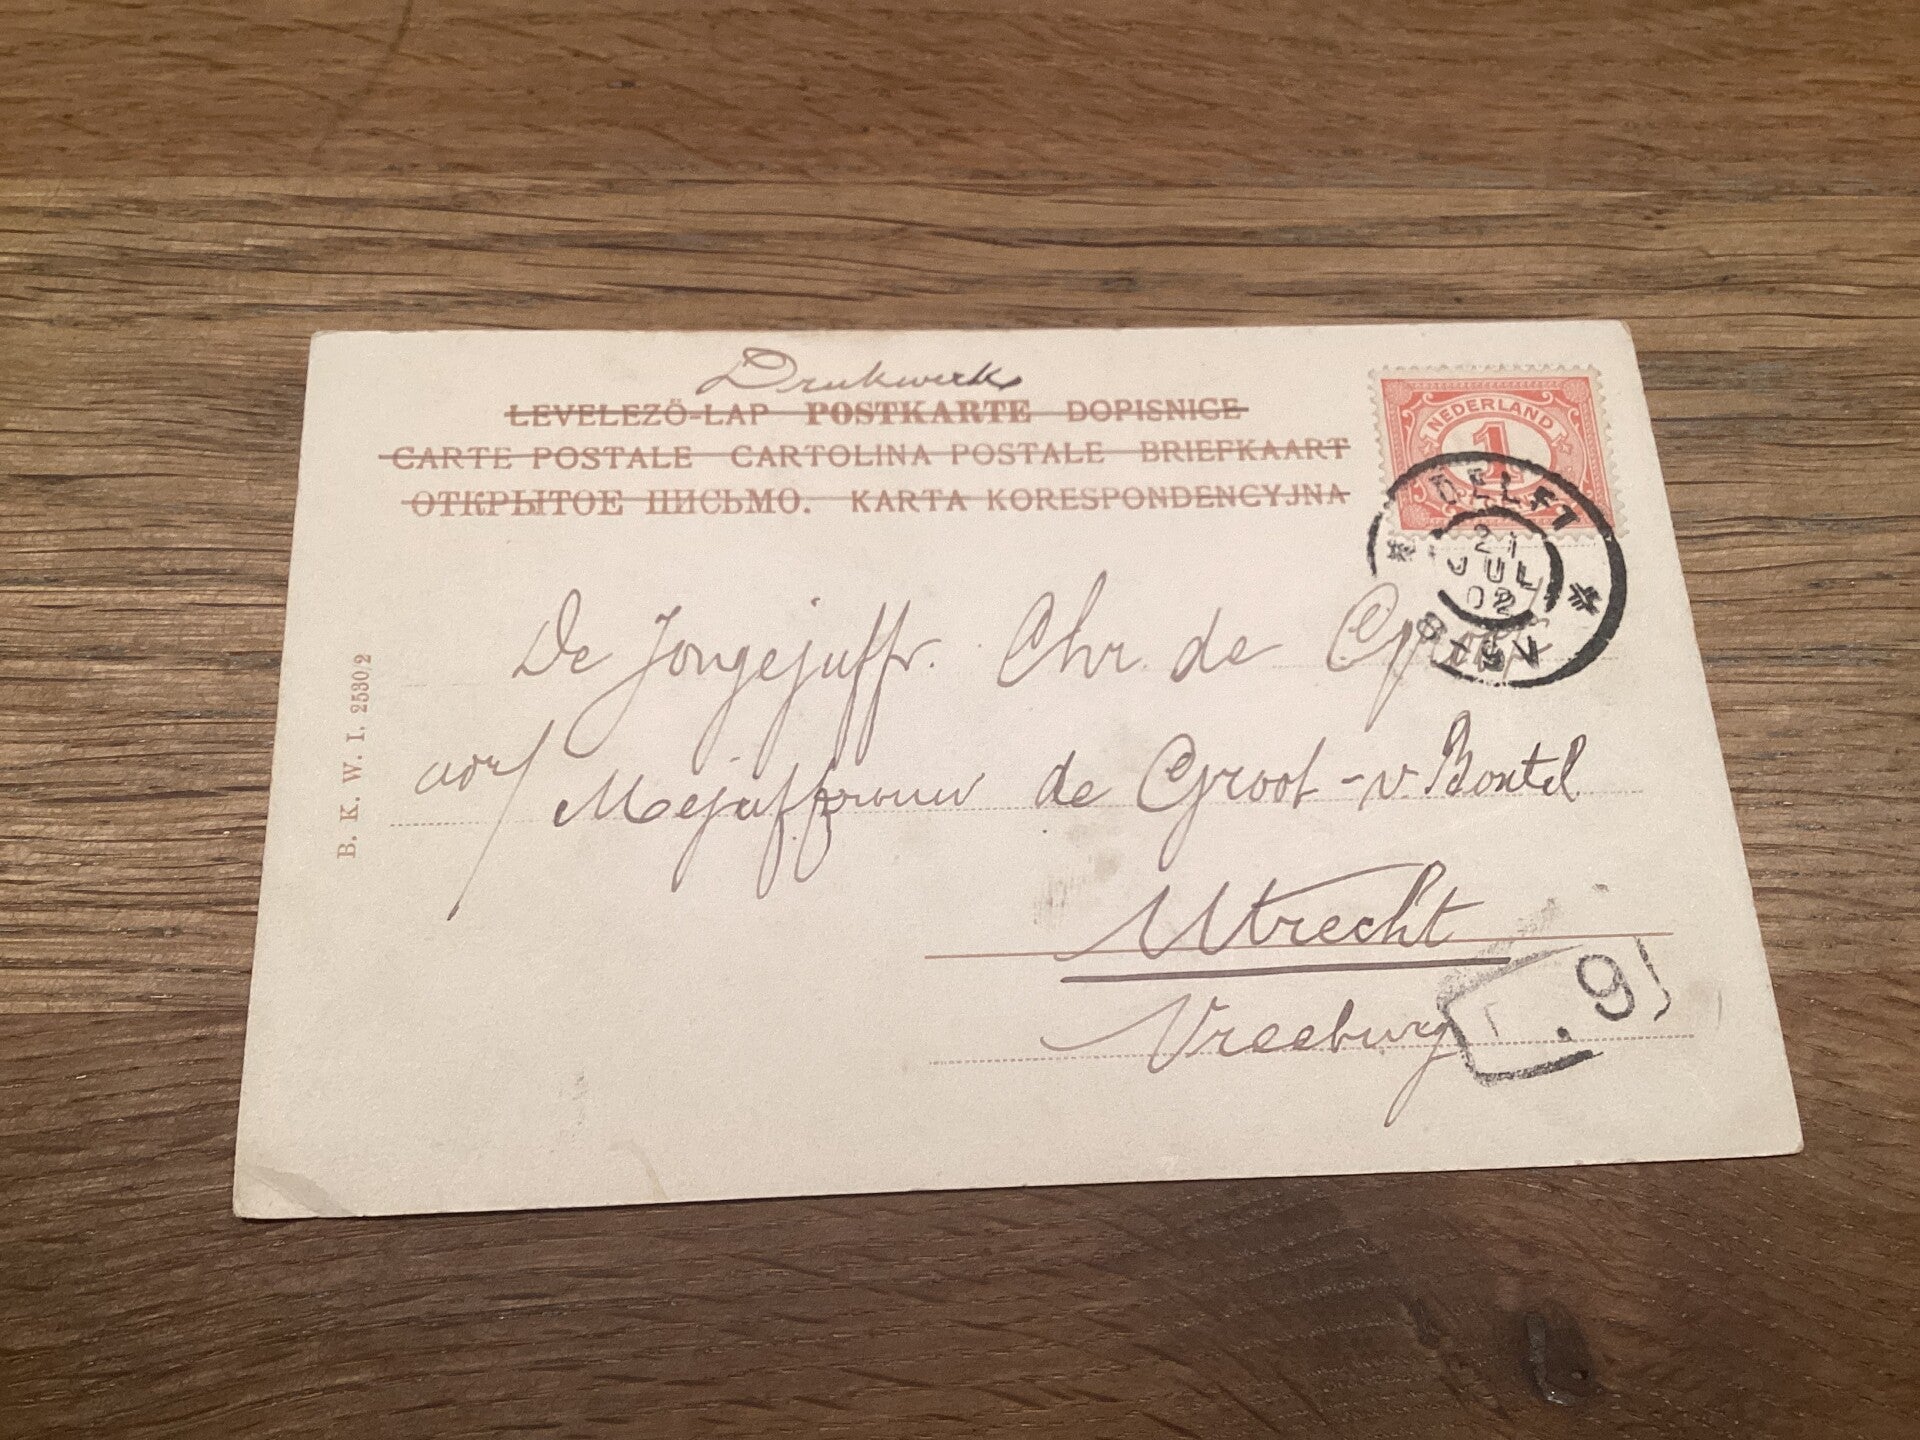 Drukwerk
LEVELEZŐ-LAP POSTKARTE DOPISNICE
CARTE POSTALE CARTOLINA POSTALE BRIEFKAART
ОТКРЫТОЕ ПИСЬМО. KARTA KORESPONDENCYJNA
NEDERLAND
1
DELFT
21
JUL
02
De Jongejuffr. Chr. de
Mejuffrouw de Groot - v. Boxtel
Utrecht
Vreeburg
9
B. K. W. I. 2530/2